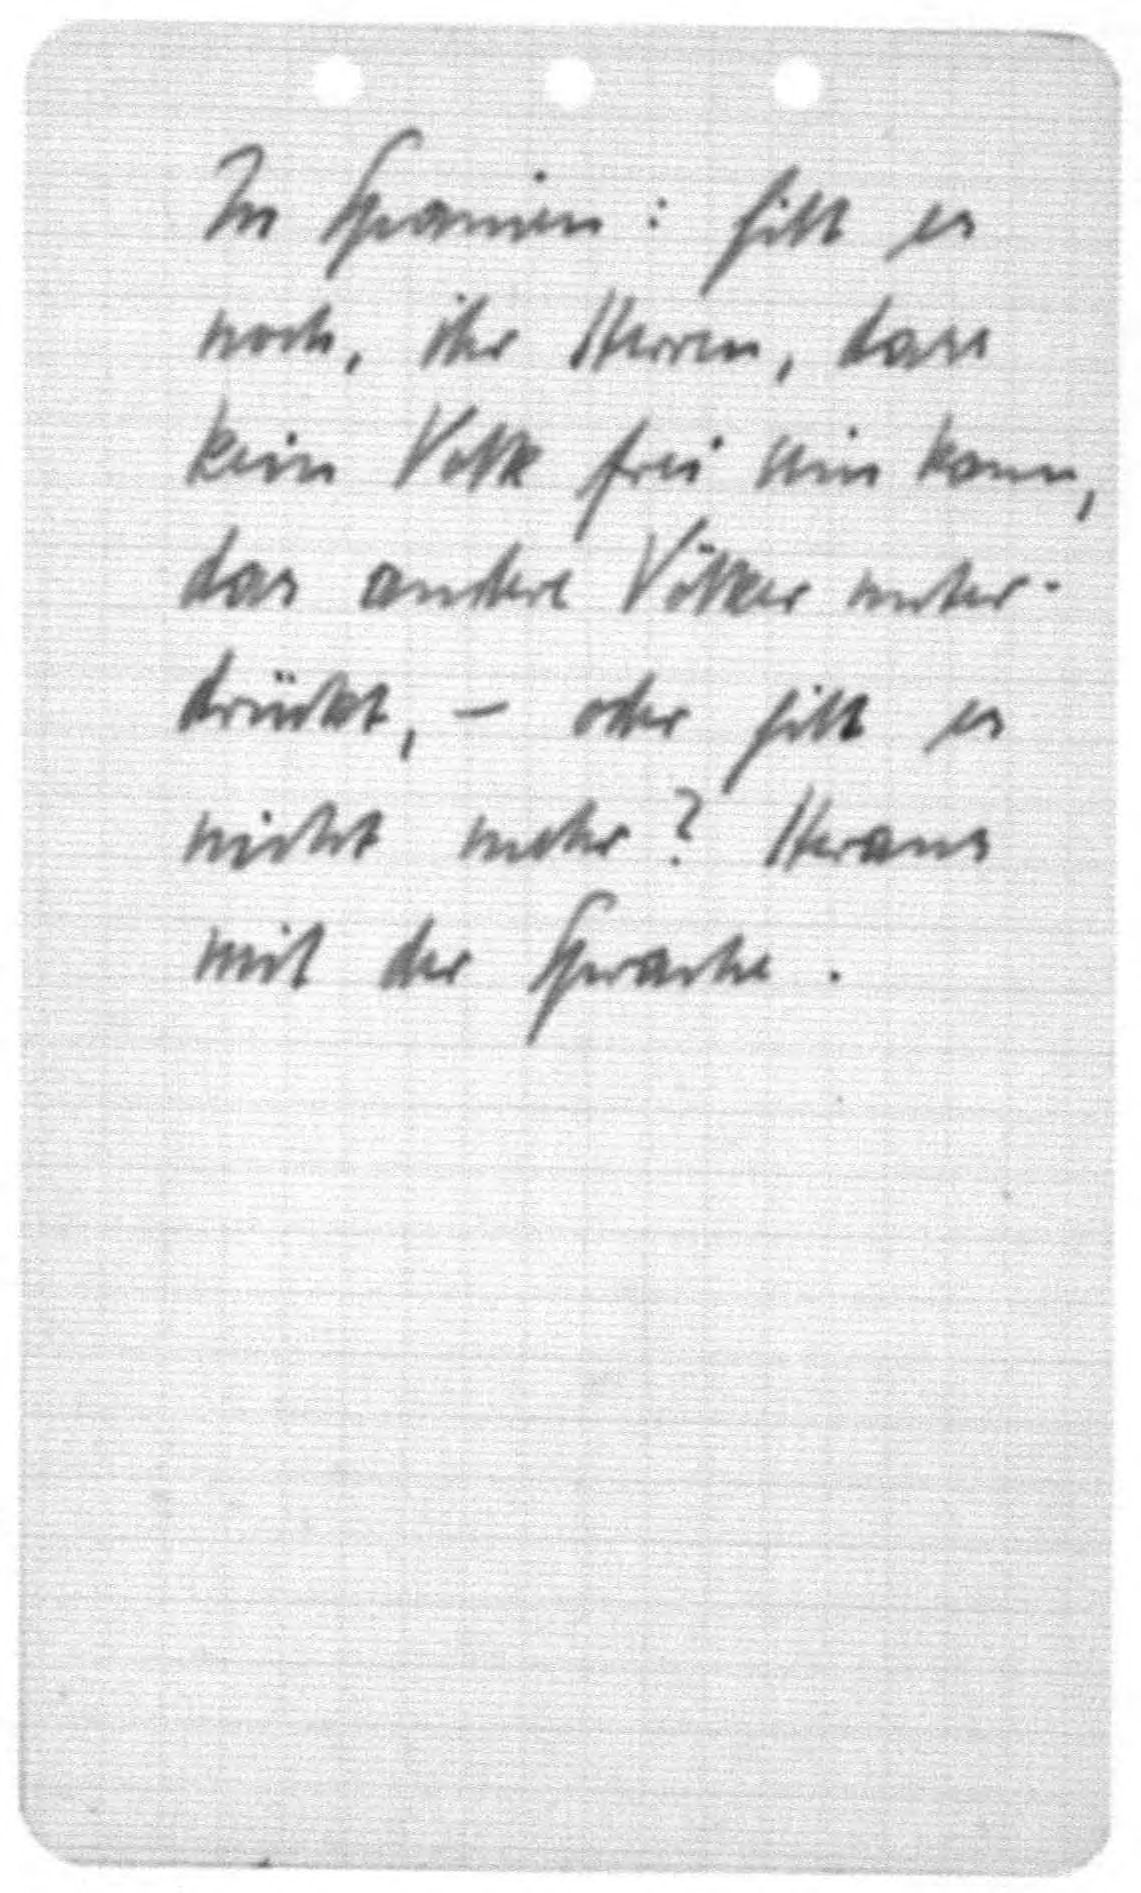 In Spanien: gilt es
noch, ihr Herren, dass
kein Volk frei sein kann,
das andere Völker unter-
drückt, – oder gilt es
nicht mehr? Heraus
mit der Sprache.